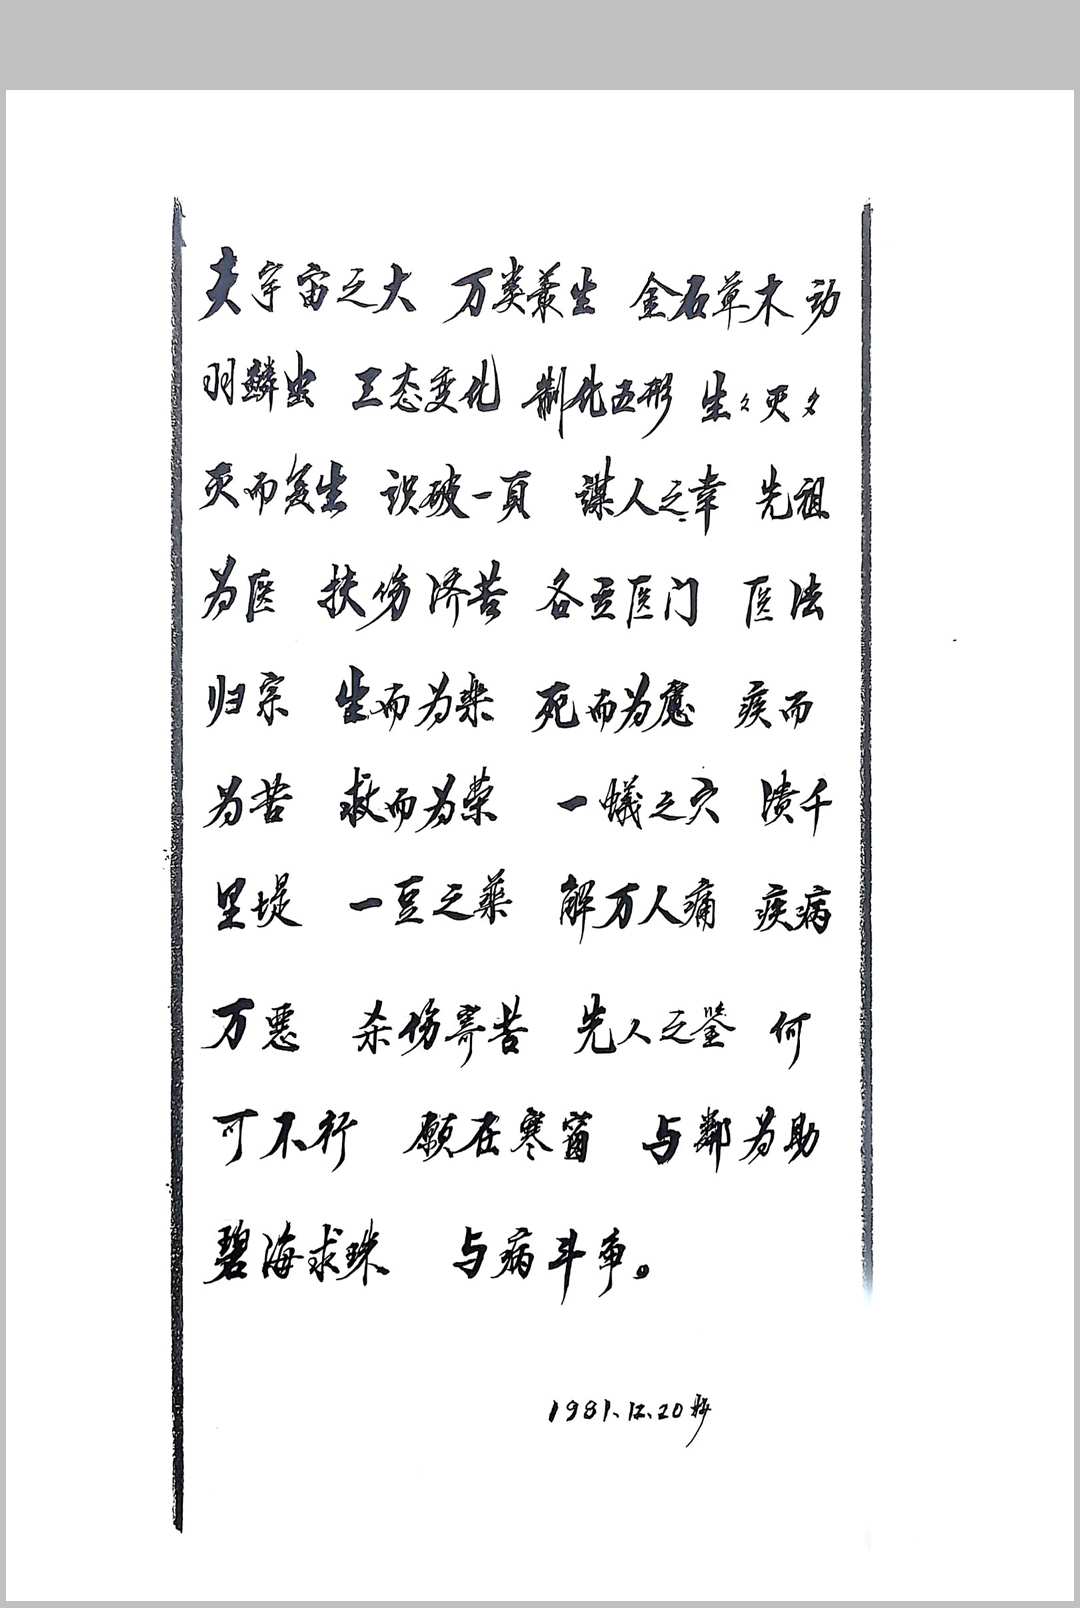 夫宇宙之大 万类叢生 金石草木 动
羽鳞虫 三态变化 制化五形 生々灭々
灭而复生 识破一頁 谋人之幸 先祖
为医 扶伤济苦 各立医门 医法
归宗 生而为乐 死而为 疾而
为苦 救而为荣 一蟻之穴 溃千
里堤 一豆之药 解万人痛 疾病
万恶 杀伤寄苦 先人之鉴 何
可不行 願在寒窗 与鄰为助
碧海求珠 与病斗争。
1981.12.20